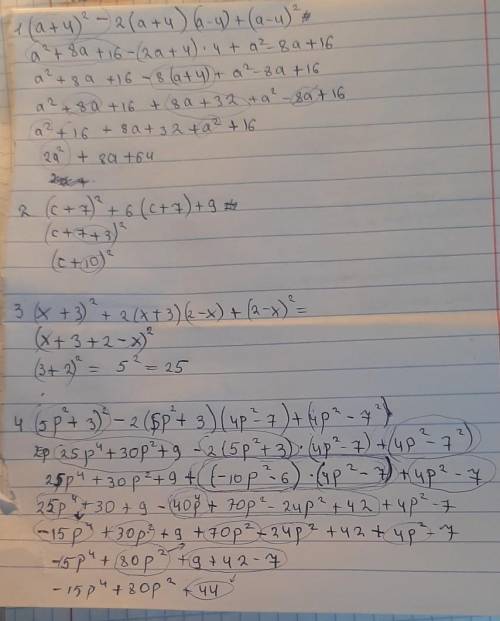 1 (a+4)² - 2(a+4)(a-4)+(a-4)²
a²+8a+16-(2a+4)·4+a²-8a+16
a²+8a+16-8(a+4)+a²-8a+16
a²+8a+16+8a+32+a²-8a+16
a²+16+8a+32+a²+16
2a²+8a+64
2 (c+7)²+6(c+7)+9
(c+7+3)²
(c+10)²
3 (x+3)²+2(x+3)(2-x)+(2-x)²=
(x+3+2-x)²
(3+2)²= 5²=25
4 (5p²+3)²-2(5p²+3)(4p²-7)+(4p²-7²)
25p⁴+30p²+9-2(5p²+3)·(4p²-7)+(4p²-7²)
25p⁴+30p²+9+((-10p²-6)·(4p²-7)+4p²-7
25p⁴+30+9-40p⁴+70p²-24p²+42+4p²-7
-15p⁴+30p²+9+70p²-24p²+42+4p²-7
-15p⁴+80p²+9+42-7
-15p⁴+80p²+44